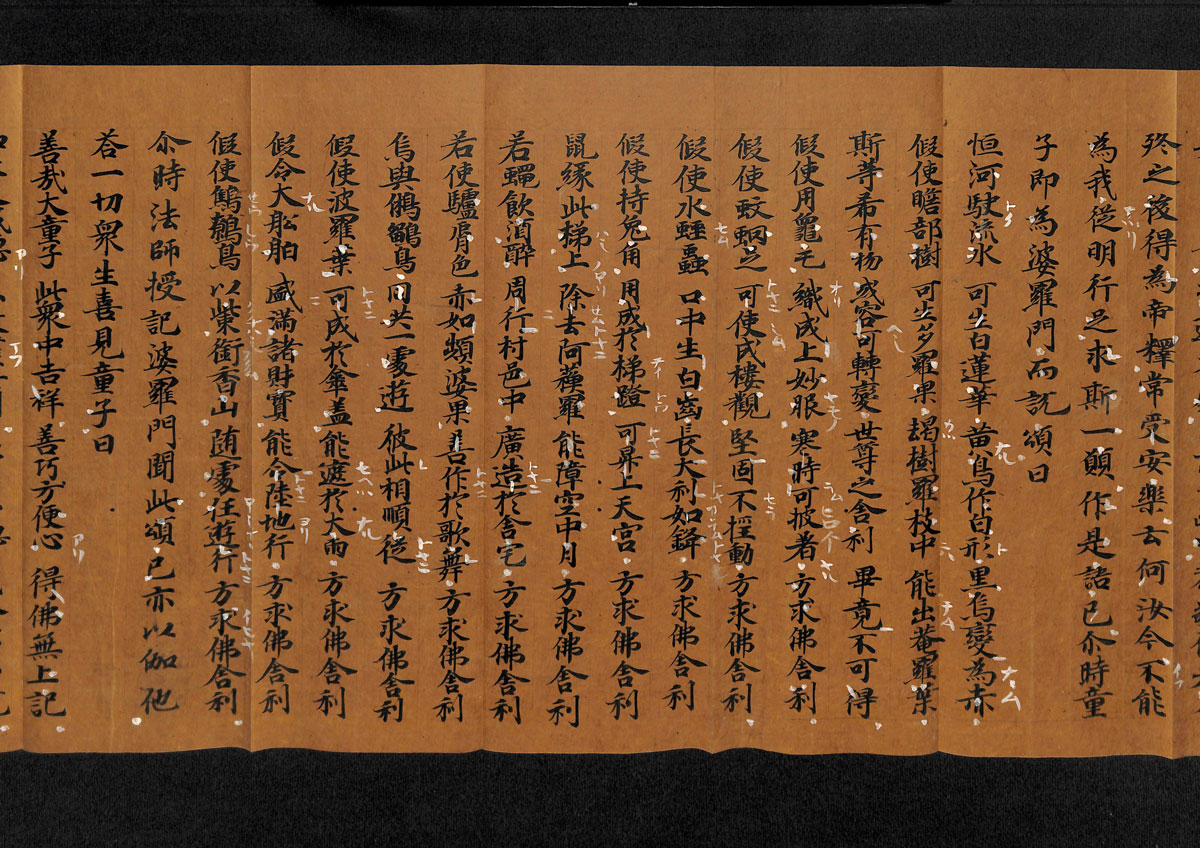 终之後得為帝釋常受安樂云何汝今不能
為我從明行足求斯一願作是語已尒時童
子即為婆羅門而説頌曰
恒河駛流水 可生白蓮華 黃鳥作白形 黑烏變為赤
假使瞻部樹 可生多羅果 朅樹羅枝中 能出菴羅葉
斯等希有物 或容可轉變 世尊之舍利 畢竟不可得
假使用龜毛 織成上妙服 寒時可披著 方求佛舍利
假使蚊蚋足 可使成樓觀 堅固不搖動 方求佛舍利
假使水蛭蟲 口中生白齒 長大利如鋒 方求佛舍利
假使持兔角 用成於梯蹬 可昇上天宮 方求佛舍利
鼠緣此梯上 除去阿蘇羅 能障空中月 方求佛舍利
若蠅飲酒醉 周行村邑中 廣造於舍宅 方求佛舍利
若使驢脣色 赤如頻婆果 善作於歌舞 方求佛舍利
烏與鵂鶹鳥 同共一處遊 彼此相順從 方求佛舍利
假使波羅葉 可成於傘蓋 能遮於大雨 方求佛舍利
假令大舩舶 盛滿諸財寶 能令陸地行 方求佛舍利
假使鷦鷯鳥 以紫銜香山 随處任遊行 方求佛舍利
尒時法師授記婆羅門聞此頌已亦以伽他
荅一切衆生喜見童子曰
善哉大童子 此衆中吉祥 善巧方便心 得佛無上記